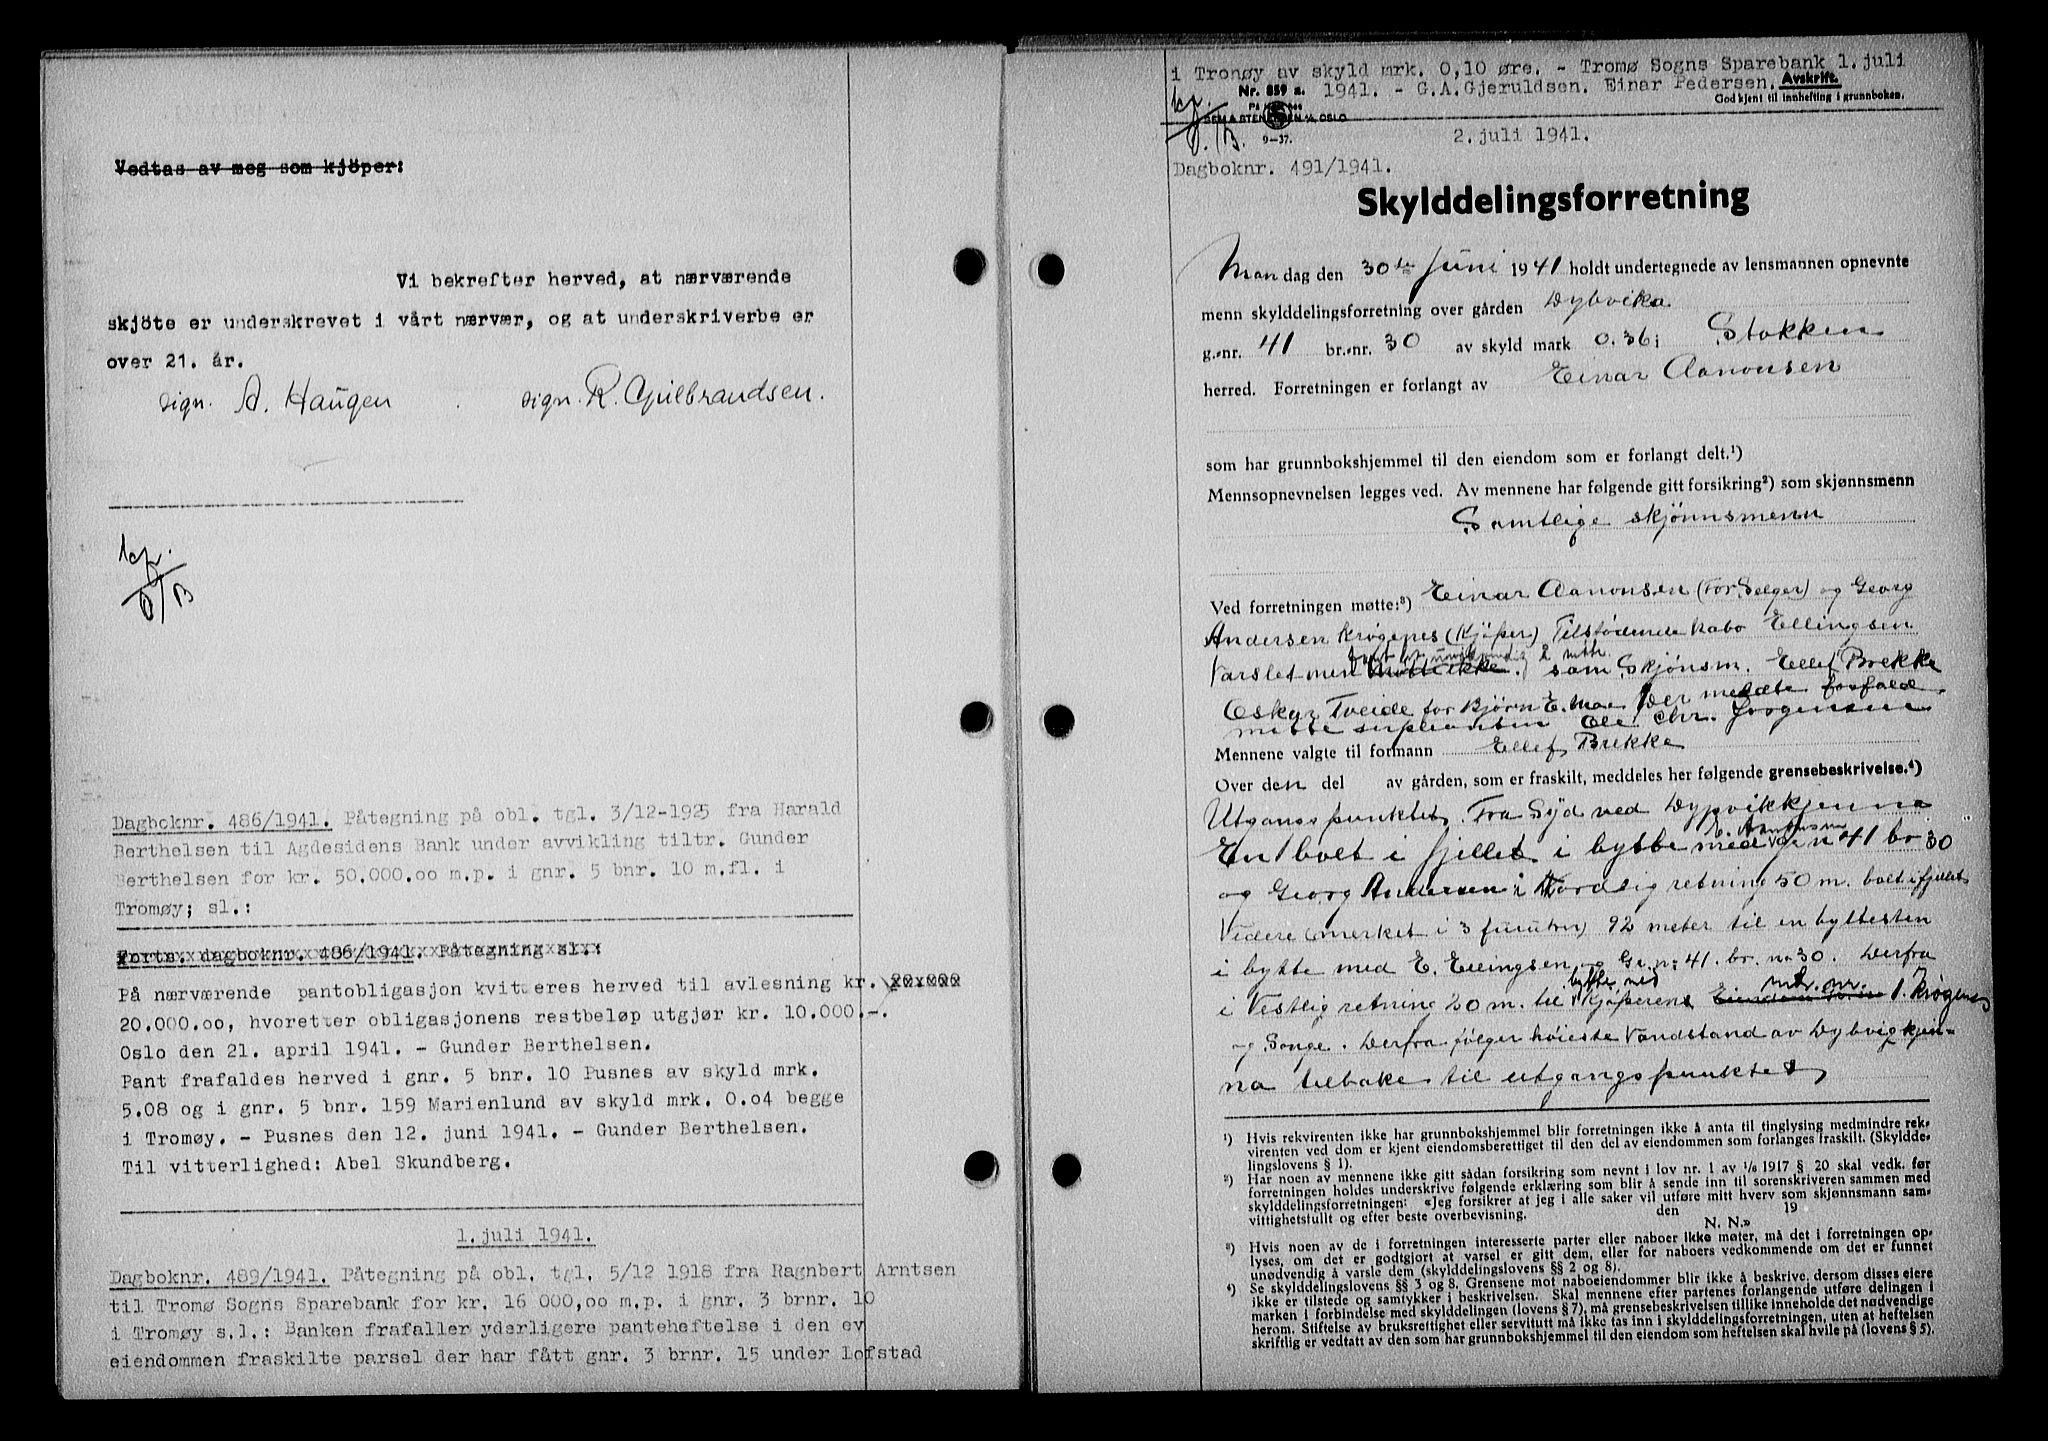 Vedtas av meg som kjöper:
Vi bekrefter herved, at nærværende
skjöte er underskrevet i vårt nærvær, og at underskriverbe er
over 21. år.
sign. A. Haugen sign. R. Gulbrandsen.
kp.
Dagboknr. 486/1941. Påtegning på obl. tgl. 3/12-1925 fra Harald
Berthelsen til Agdesidens Bank under avvikling tiltr. Gunder
Berthelsen for kr. 50.000.oo m.p. i gnr. 5 bnr. 10 m.fl. i
Tromøy; sl.:
Forts. dagboknr. 486/1941. Påtegning sl.:
På nærværende pantobligasjon kvitteres herved til avlesning kr. 20.000
20.000.oo, hvoretter obligasjonens restbeløp utgjør kr. 10.000.-.
Oslo den 21. april 1941. - Gunder Berthelsen.
Pant frafaldes herved i gnr. 5 bnr. 10 Pusnes av skyld mrk.
5.08 og i gnr. 5 bnr. 159 Marienlund av skyld mrk. 0.04 begge
i Tromøy. - Pusnes den 12. juni 1941. - Gunder Berthelsen.
Til vitterlighed: Abel Skundberg.
1. juli 1941.
Dagboknr. 489/1941. Påtegning på obl. tgl. 5/12 1918 fra Ragnbert Arntsen
til Tromø Sogns Sparebank for kr. 16 000,oo m.p. i gnr. 3 brnr. 10
i Tromøy s.l.: Banken frafaller yderligere panteheftelse i den ev
eiendommen fraskilte parsel der har fått gnr. 3 brnr. 15 under Lofstad
i Tromøy av skyld mrk. 0,10 øre. - Tromø Sogns Sparebank 1. juli
1941. - G.A.Gjeruldsen. Einar Pedersen.
Nr. 859 a.
Avskrift.
God kjent til innhefting i grunnboken.
SEM & STENERSEN A/S, OSLO
9-37.
kp.
2. juli 1941.
Dagboknr. 491/1941.
Skylddelingsforretning
Mandag den 30te Juni 1941 holdt undertegnede av lensmannen opnevnte
menn skylddelingsforretning over gården Dybvika
g.-nr. 41 br.-nr. 30 av skyld mark 0.36 i Stokken
herred. Forretningen er forlangt av Einar Aanonsen
som har grunnbokshjemmel til den eiendom som er forlangt delt.¹)
Mennsopnevnelsen legges ved. Av mennene har følgende gitt forsikring²) som skjønnsmenn
Samtlige skjønnsmenn
Ved forretningen møtte:³) Einar Aanonsen (for Selger) og Georg
Andersen Krøgenes (Kjøper) Tilstødende Nabo Ellingsen
Varslet men møtte ikke. som Skjønsm. Ellef Brekke
Oskar Tveide for Bjørn E. Moe Der meldte forfald
møtte suplianten Ole Chr. Jørgensen
Mennene valgte til formann Ellef Brekke
Over den del av gården, som er fraskilt, meddeles her følgende grensebeskrivelse.⁴)
Utgangspunktet. Fra Syd ved Dypvikkjenna
En bolt i fjellet i bytte med E. Aanonsen g n 41 br 30
og Georg Andersen i Nordlig retning 50 m. bolt i fjellet
Videre (merket i 3 furutrær) 92 meter til en byttesten
i bytte med E. Ellingsen og Gr. n: 41. br. nr 30. Derfra
i Vestlig retning 20 m. til bytte med kjøperens Eiendom mtr. nr. 1. Krøgenes
og Songe. Derfra følger høieste Vandstand av Dybvigkjen-
na tilbake til utgangspunktet
¹) Hvis rekvirenten ikke har grunnbokshjemmel blir forretningen ikke å anta til tinglysing medmindre rek-
virenten ved dom er kjent eiendomsberettiget til den del av eiendommen som forlanges fraskilt. (Skyldde-
lingslovens § 1).
²) Har noen av mennene ikke gitt sådan forsikring som nevnt i lov nr. 1 av 1/6 1917 § 20 skal vedk. før
forretningen holdes underskrive følgende erklæring som blir å sende inn til sorenskriveren sammen med
skylddelingsforretningen: «Jeg forsikrer at jeg i alle saker vil utføre mitt hverv som skjønnsmann sam-
vittighetsfullt og efter beste overbevisning. den 19
N. N.»
³) Hvis noen av de i forretningen interesserte parter eller naboer ikke møter, må det i forretningen op-
lyses, om det er godtgjort at varsel er gitt dem, eller for naboers vedkommende om det er funnet
unødvendig å varsle dem (skylddelingslovens §§ 2 og 8).
⁴) Se skylddelingslovens §§ 3 og 8. Grensene mot naboeiendommer blir ikke å beskrive, dersom disses eiere
ikke er tilstede og samtykker i beskrivelsen. Skal mennene efter partenes forlangende utføre delingen i
marken i forbindelse med skylddelingen (lovens § 7), må grensebeskrivelsen tillike inneholde det nødvendige
herom. Stiftelse av bruksrettighet eller servitutt må ikke tas inn i skylddelingsforretningen, uten at heftelsen
skriftlig er vedtatt av den som har grunnbokshjemmel til den eiendom som heftelsen skal hvile på (lovens § 5).